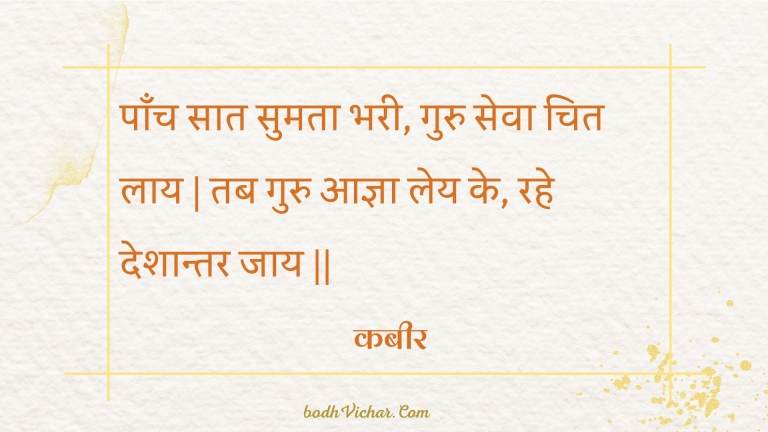 पाँच सात सुमता भरी, गुरु सेवा चित
लाय | तब गुरु आज्ञा लेय के, रहे
देशान्तर जाय ||
कबीर
bodhVichar.Com